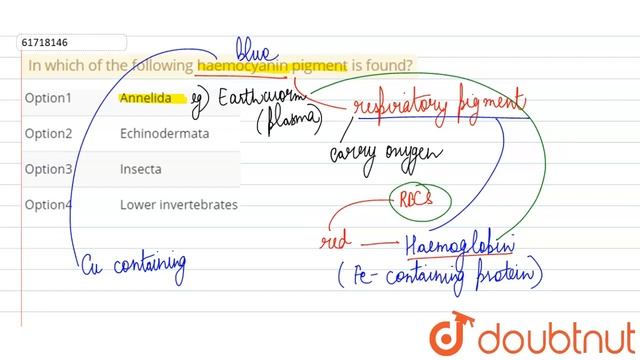 61718146
blue
In which of the following haemocyanin pigment is found?
Option1 Annelida eg) Earthworm
(plasma)
respiratory pigment
carry oxygen
Option2 Echinodermata
Option3 Insecta
Option4 Lower invertebrates
RBCs
red — Haemoglobin
(Fe-containing protein)
Cu containing
doubtnut